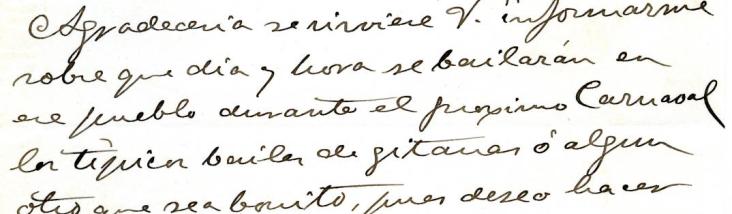 Agradeceria se sirviese V. informarme
sobre que dia y hora se bailarán en
ese pueblo durante el proximo Carnaval
los típicos bailes de gitanas ó algun
otro que sea bonito, pues deseo hacer